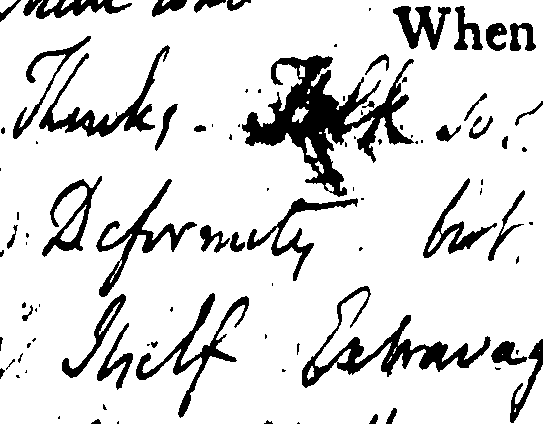 When
Thinks - Talk so?
Deformity but
Itself Extravag